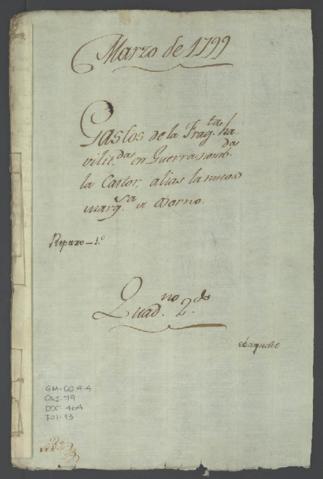 Marzo de 1799
Gastos de la Frag.ta ha
vilit.da en Guerra nomb.da
la Castor, alias la
marg.ta a
Reparo 1.º
Quad.no 2.do
GM-CO.A-4
DOC-404
FOL-93